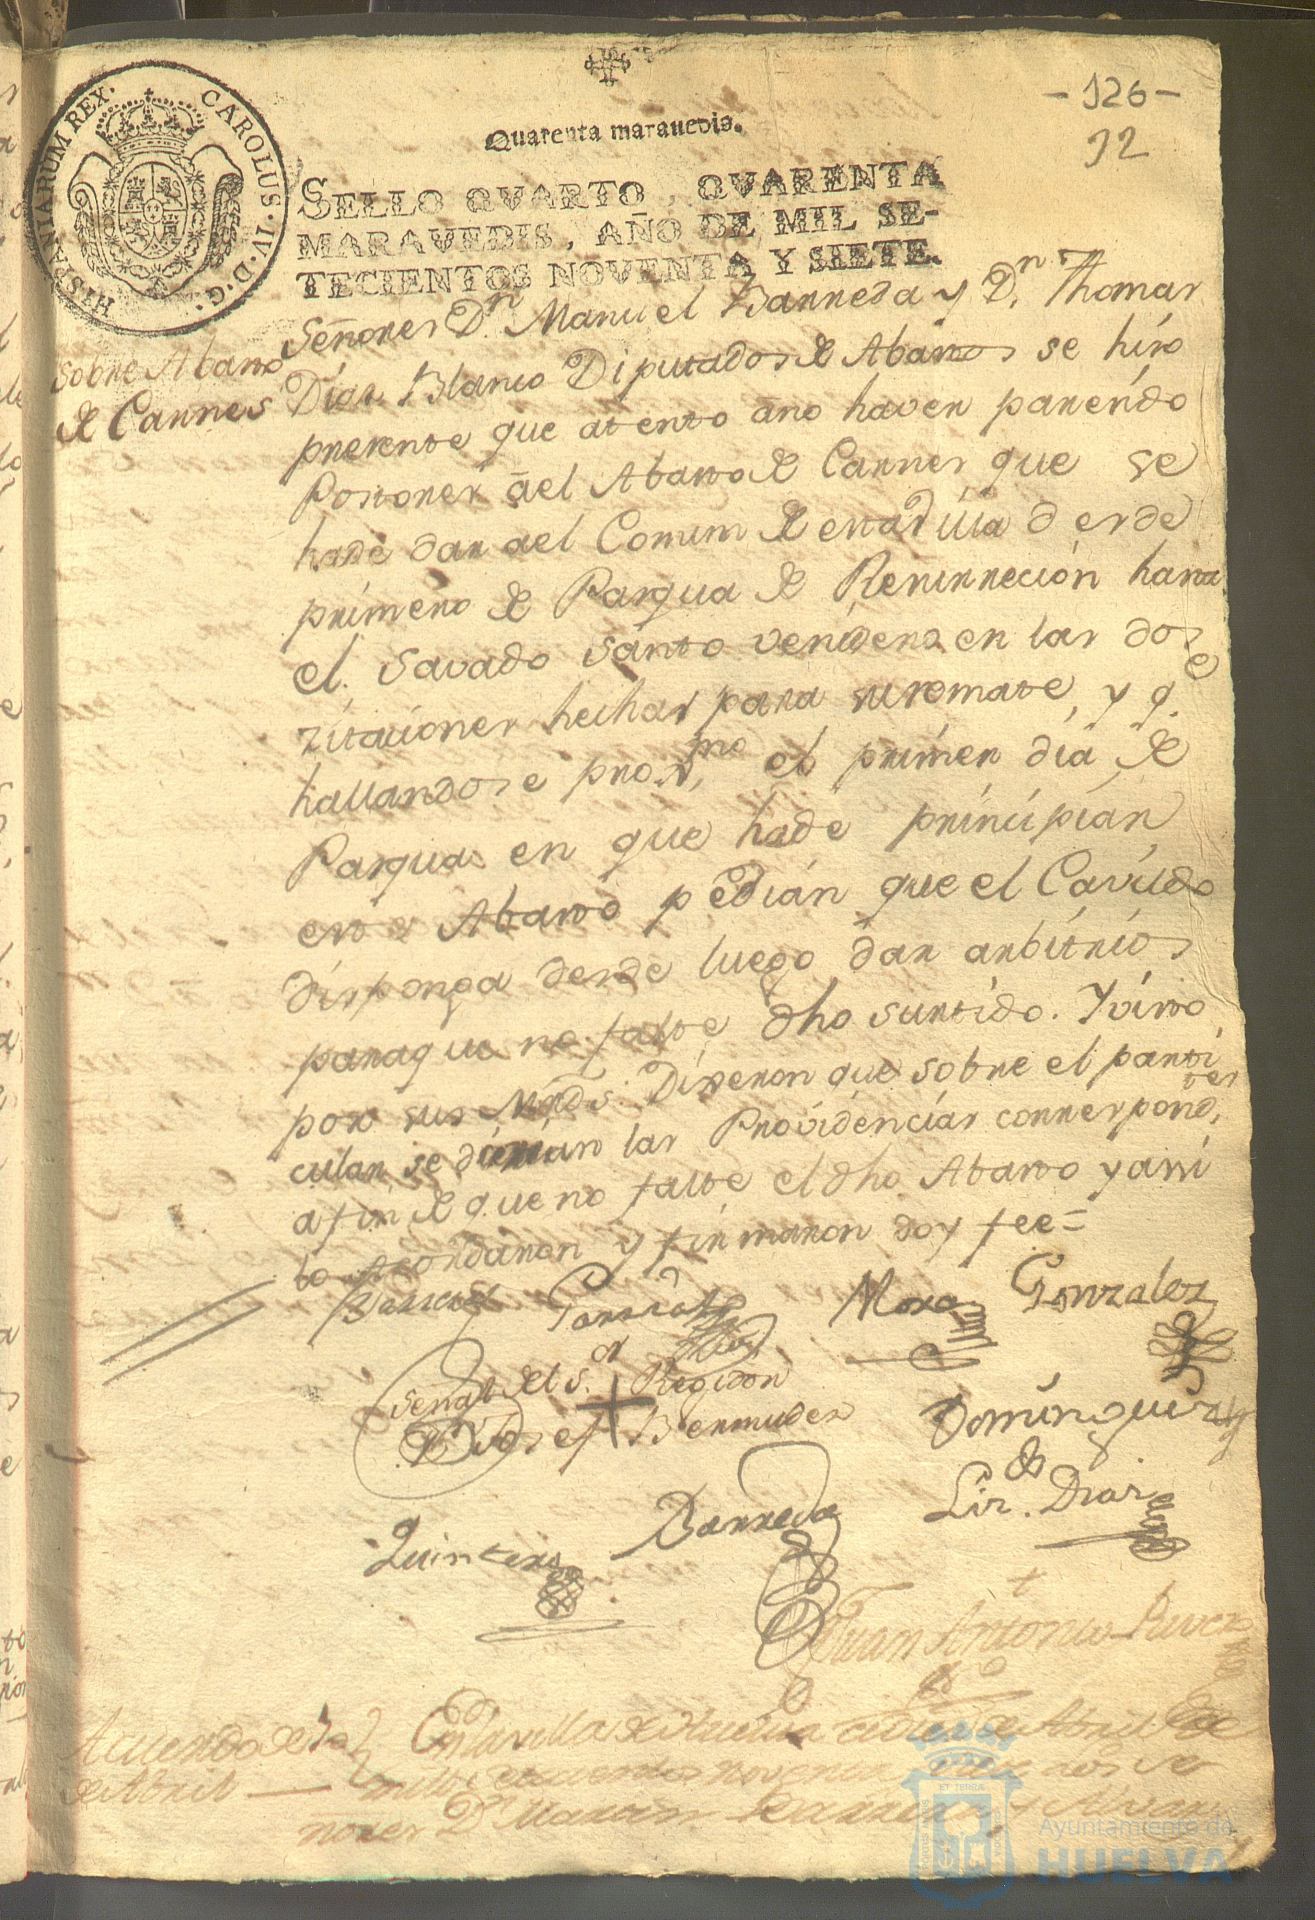 - 126 -
32
Quarenta marauedis.
HISPANIARUM REX. CAROLUS. IV. D. G.
SELLO QVARTO, QVARENTA
MARAVEDIS, AÑO DE MIL SE-
TECIENTOS NOVENTA Y SIETE.
Sobre Abasto
de Carnes
Señores Dn. Manuel Barreda y Dn. Thomas
Dias Blanco Diputados de Abastos se hiso
presente que atento ano haver paresido
Postores ael Abasto de Carnes que se
hade dar ael Comun de esta Villa desde
primero de Pasqua de Resurrecion hasta
el Savado Santo venidero en las dos
zitaciones hechas para su remate, y qe.
hallandose proxmo, el primer dia de
Pasqua en que hade principiar
este Abasto pedian que el Cavildo
disponga desde luego dar arbitrios
paraque no falte dho surtido. Y visto
por sus Mrds. Dixeron que sobre el parti
cular se darán las Providencias correspondtes,
afin de que no falte el dho Abasto y assi
lo acordaron y firmaron doy fee=
Mora Gonzalez
Señal del Sor. Regidor
Josef + Bermudez
Dominguez
Quintero
Barreda
Lizdo. Diaz
Juan Antonio Rivera
Acuerdo de
de Abril
En la villa de Huelva de Abril de
mill setecientos noventa los se
ñores Dn.
ET TERRÆ
Ayuntamiento de
HUELVA